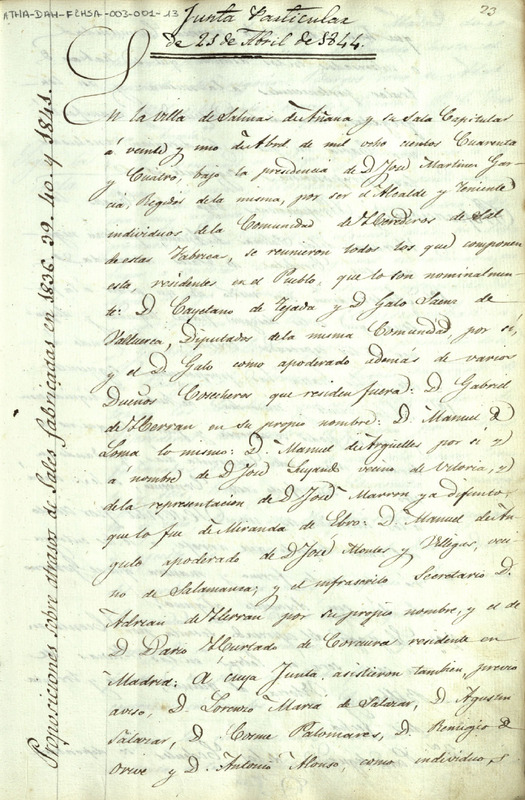 ATHA-DAH-FEHSA-003-001-13
23
Junta Particular
de 21 de Abril de 1844.
Proposiciones sobre atrasos de Sales fabricadas en 1836. 39. 40. y 1841.
En la Villa de Salinas de Añana y su Sala Capitular
á veinte y uno de Abril de mil ocho cientos Cuarenta
y Cuatro, bajo la presidencia de D. José Martinez Gar-
cia, Regidor de la misma, por ser el Alcalde y Teniente
individuos de la Comunidad de Herederos de Sal
de estas Fabricas, se reunieron todos los que componen
esta, residentes en el Pueblo, que lo son nominalmen-
te: D. Cayetano de Tejada y D. Galo Saenz de
Valluerca, Diputados de la misma Comunidad por sí,
y el D. Galo como apoderado ademas de varios
Dueños Cosecheros que residen fuera: D. Gabriel
de Herran en su propio nombre: D. Manuel de
Loma lo mismo: D. Manuel de Argüelles por sí y
á nombre de D. José vecino de Vitoria, y
de la representacion de D. José Marron ya difunto,
que lo fue de Miranda de Ebro: D. Manuel de An-
gulo apoderado de D. José Montes y Villegas, veci-
no de Salamanca, y el infrascrito Secretario D.
Adrian de Herran por su propio nombre, y el de
D. Dario Hurtado de Corcuera residente en
Madrid: Á cuya Junta, asistieron tambien, previo
aviso, D. Lorenzo Maria de Salazar, D. Agustin
Salazar, D. Cosme Palomares, D. Remigio de
Orive y D. Antonio Alonso, como individuos